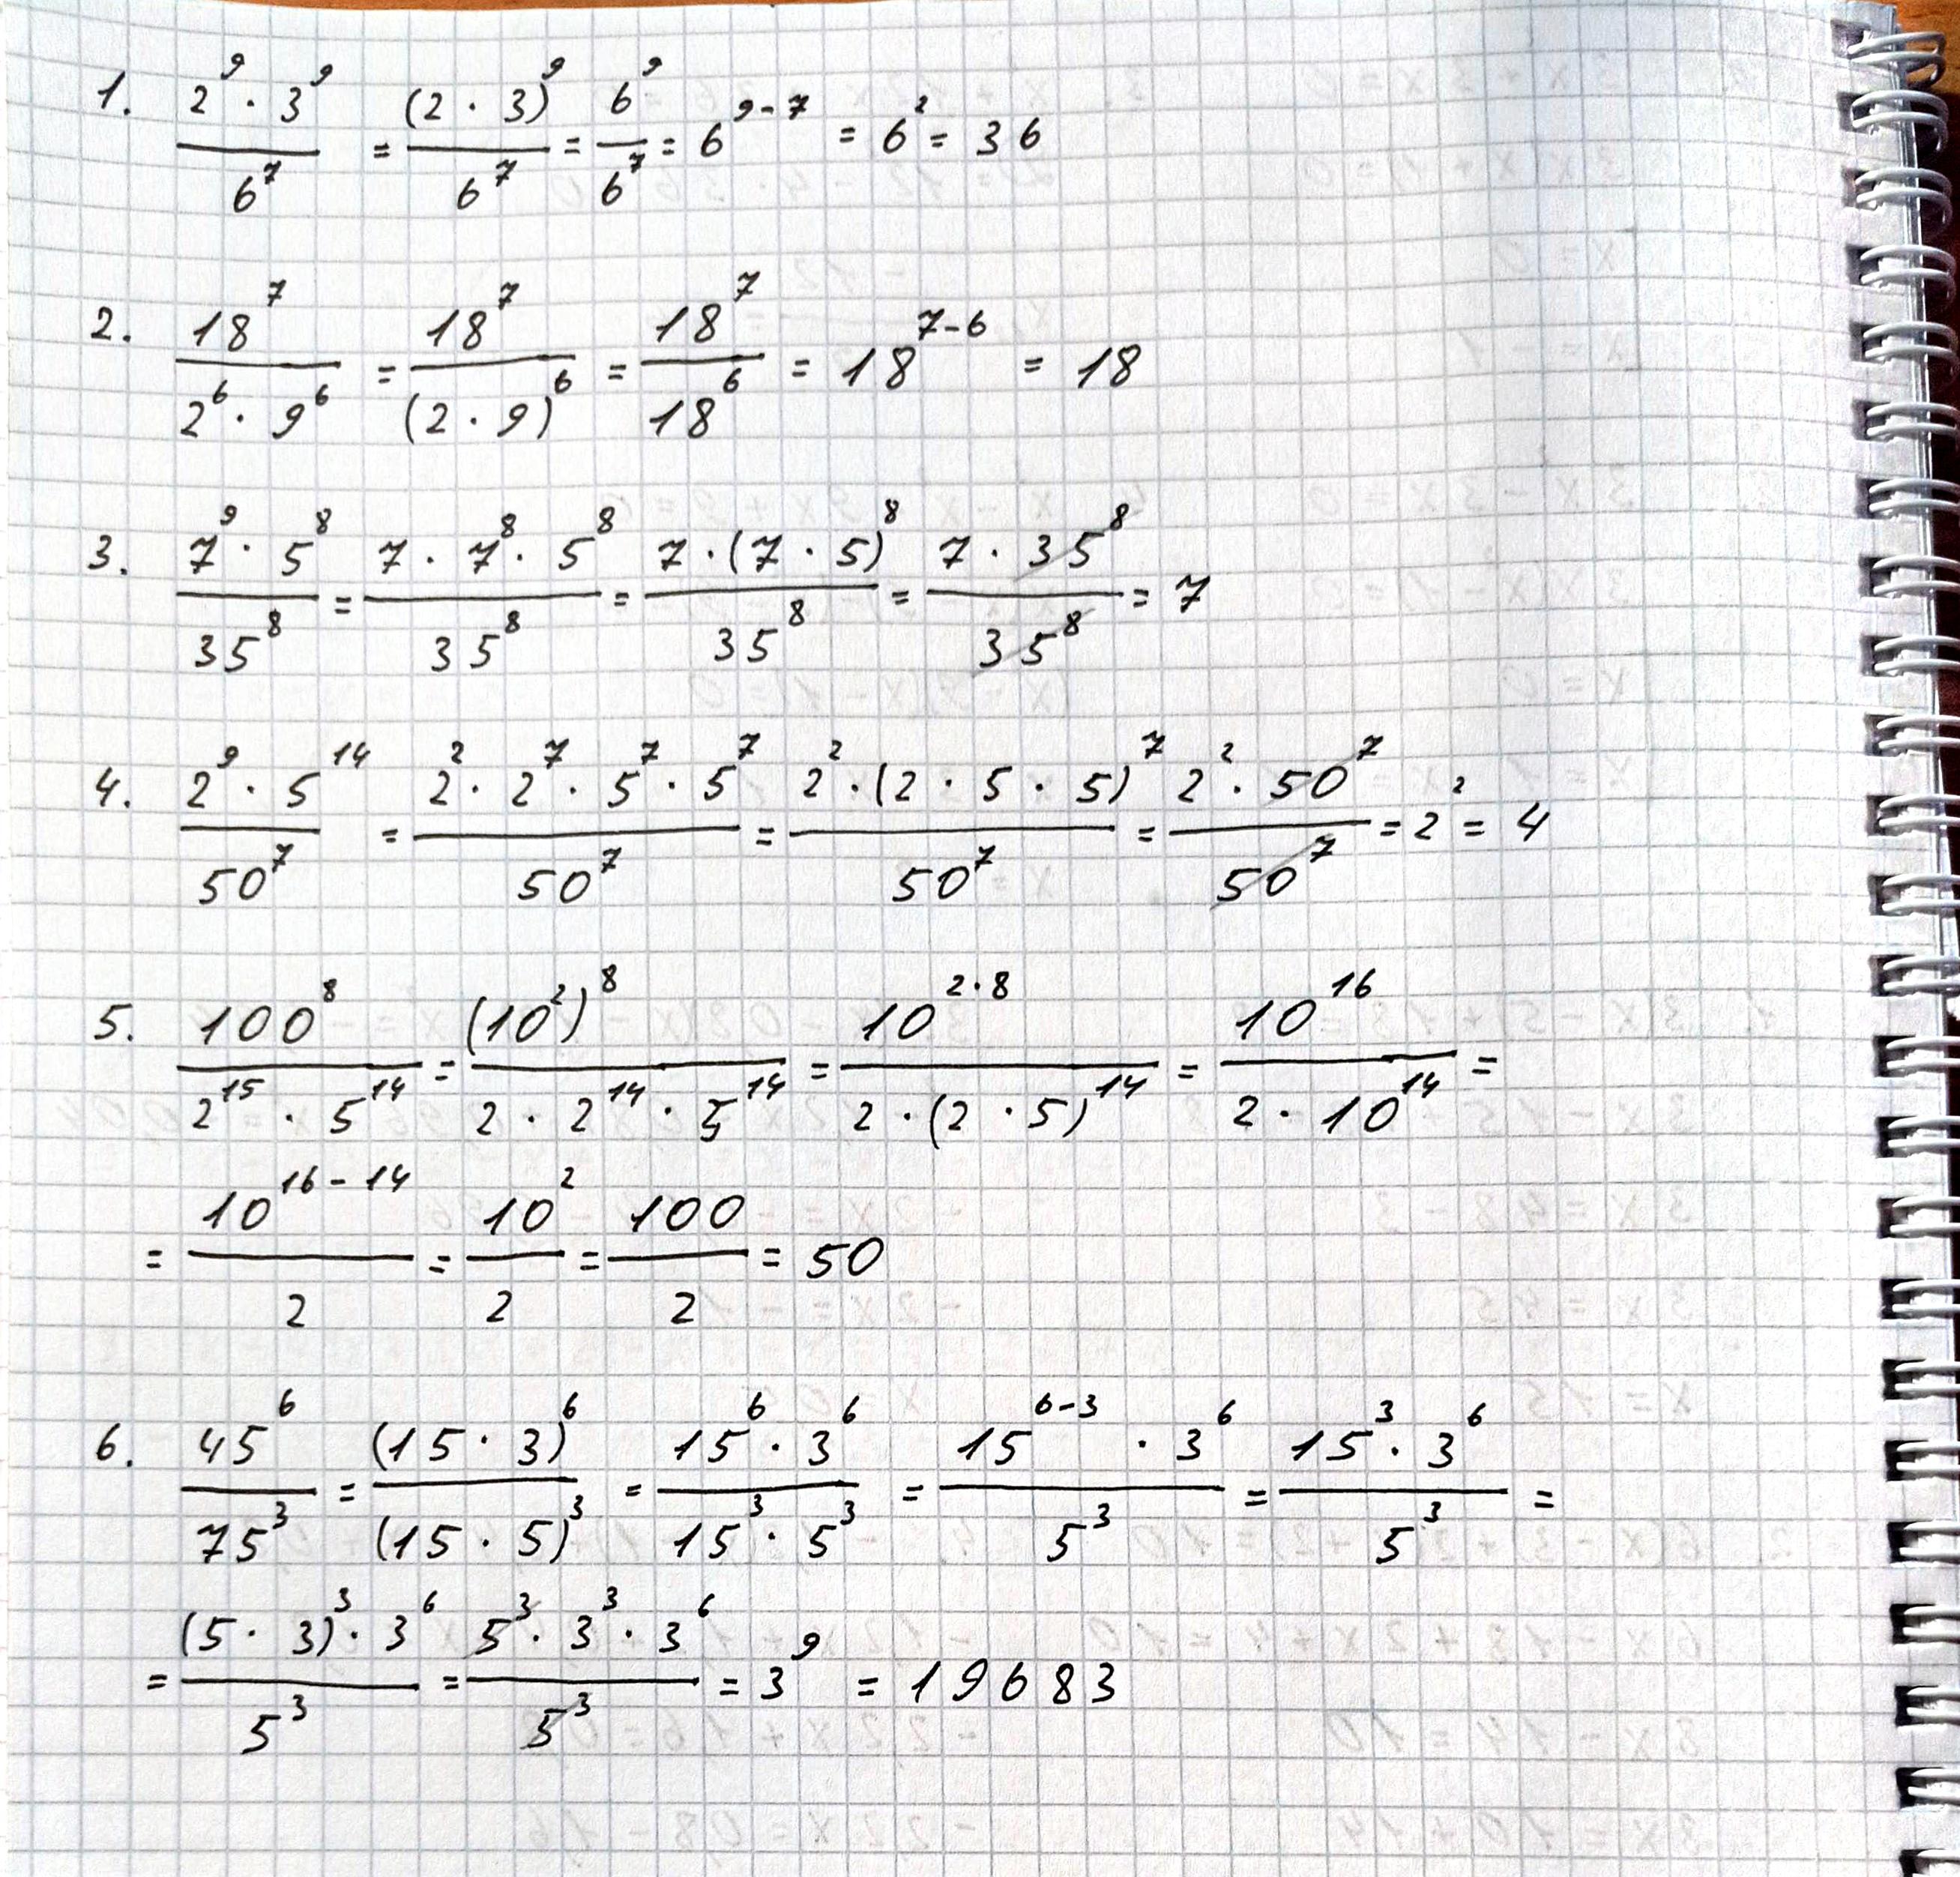 1. \frac{2^9 · 3^9}{6^7} = \frac{(2 · 3)^9}{6^7} = \frac{6^9}{6^7} = 6^{9-7} = 6^2 = 36
2. \frac{18^7}{2^6 · 9^6} = \frac{18^7}{(2 · 9)^6} = \frac{18^7}{18^6} = 18^{7-6} = 18
3. \frac{7^9 · 5^8}{35^8} = \frac{7 · 7^8 · 5^8}{35^8} = \frac{7 · (7 · 5)^8}{35^8} = \frac{7 · 35^8}{35^8} = 7
4. \frac{2^9 · 5^{14}}{50^7} = \frac{2^2 · 2^7 · 5^7 · 5^7}{50^7} = \frac{2^2 · (2 · 5 · 5)^7}{50^7} = \frac{2^2 · 50^7}{50^7} = 2^2 = 4
5. \frac{100^8}{2^{15} · 5^{14}} = \frac{(10^2)^8}{2 · 2^{14} · 5^{14}} = \frac{10^{2·8}}{2 · (2 · 5)^{14}} = \frac{10^{16}}{2 · 10^{14}} =
= \frac{10^{16-14}}{2} = \frac{10^2}{2} = \frac{100}{2} = 50
6. \frac{45^6}{75^3} = \frac{(15 · 3)^6}{(15 · 5)^3} = \frac{15^6 · 3^6}{15^3 · 5^3} = \frac{15^{6-3} · 3^6}{5^3} = \frac{15^3 · 3^6}{5^3} =
= \frac{(5 · 3)^3 · 3^6}{5^3} = \frac{5^3 · 3^3 · 3^6}{5^3} = 3^9 = 19683